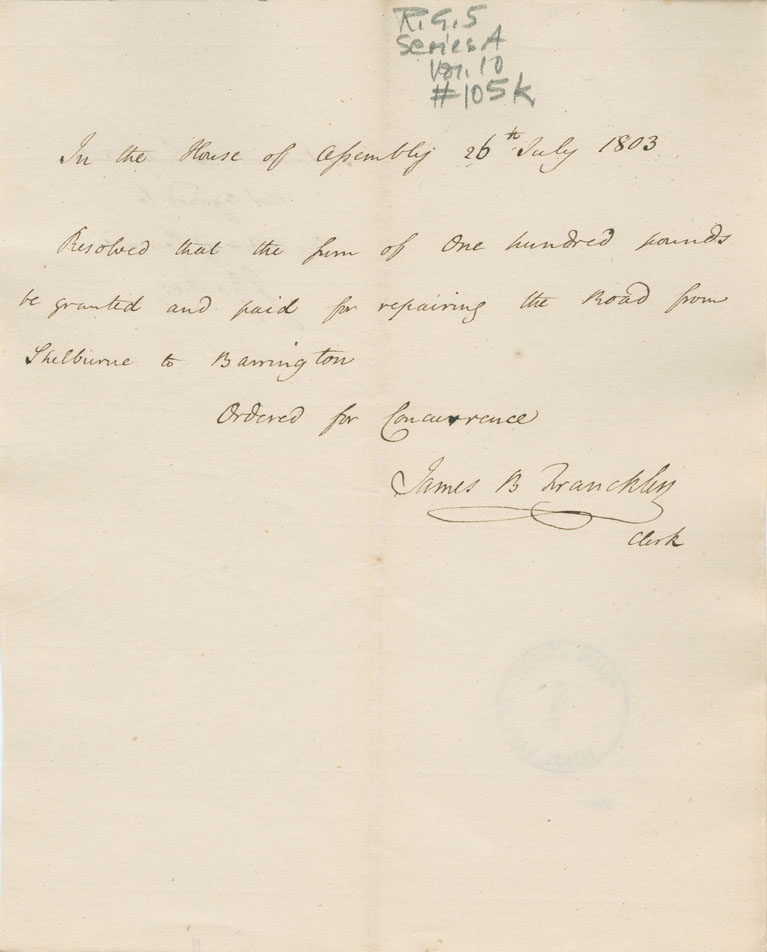 R.G.5
Series A
Vol. 10
#105k
In the House of Assembly 26th July 1803
Resolved that the sum of One hundred pounds
be granted and paid for repairing the Road from
Shelburne to Barrington
Ordered for Concurrence
James B Franckling
Clerk